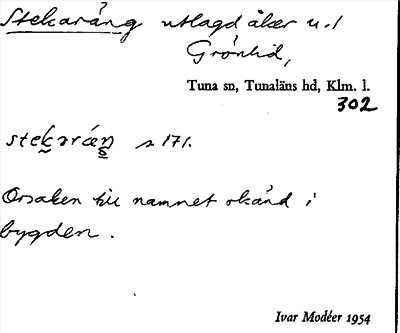 Stekaräng utlagd åker u. l
Grönlid,
Tuna sn, Tunaläns hd, Klm. l.
302
stekəræŋ s 171.
Orsaken till namnet okänd i
bygden.
Ivar Modéer 1954